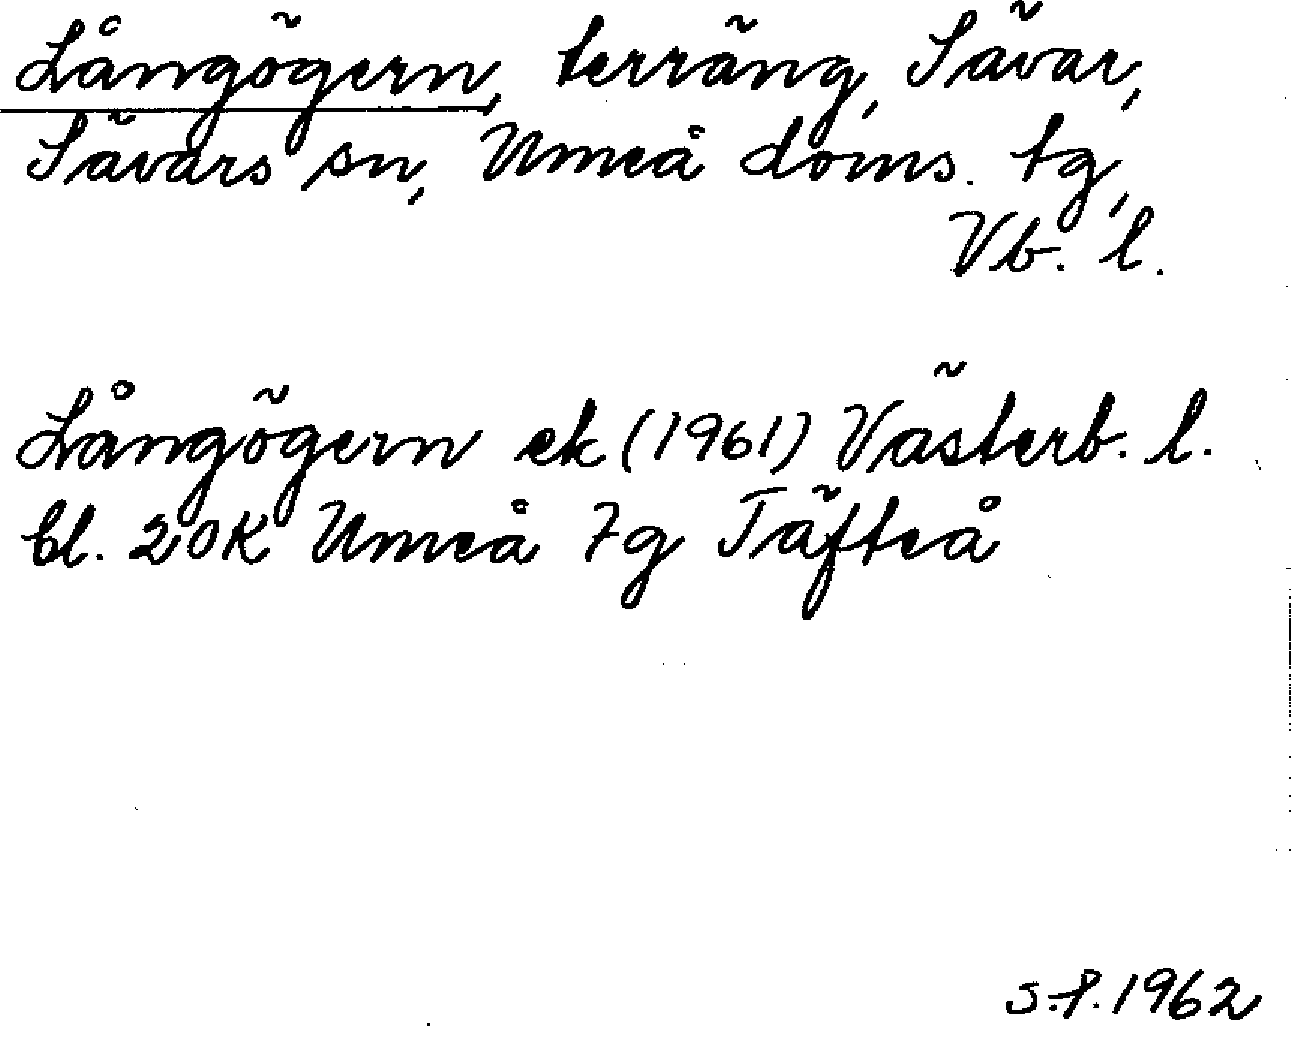 Långögern, terräng, Sävar,
Sävars sn, Umeå doms. tg,
Vb. l.
Långögern ek (1961) Västerb. l.
bl. 20K Umeå 7g Täfteå
S.f. 1962